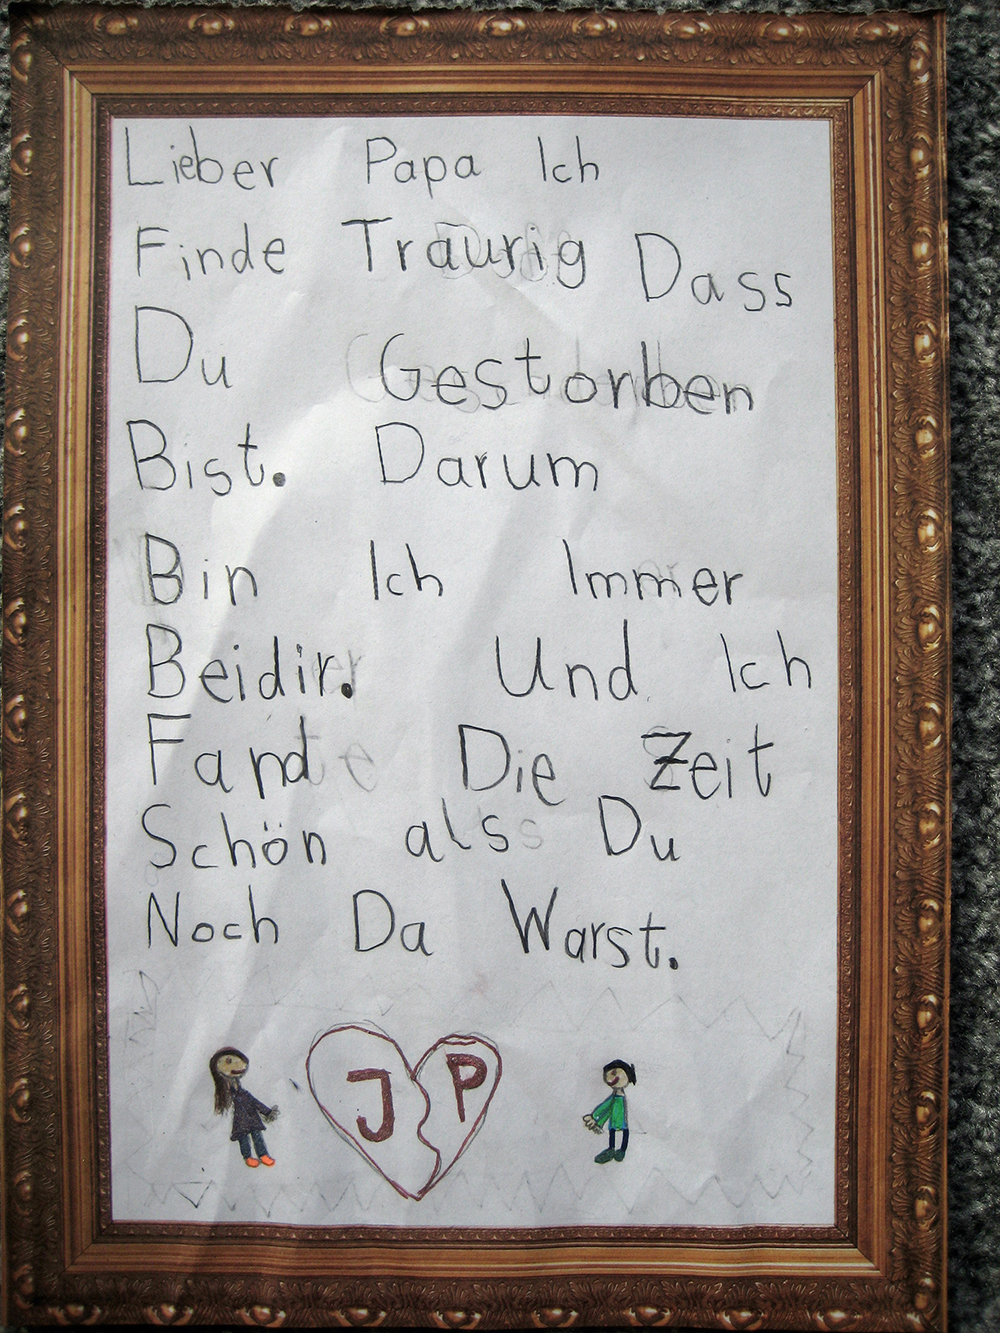 Lieber Papa Ich
Finde Traurig Dass
Du Gestorben
Bist. Darum
Bin Ich Immer
Beidir. Und Ich
Fand Die Zeit
Schön als Du
Noch Da Warst.
J P